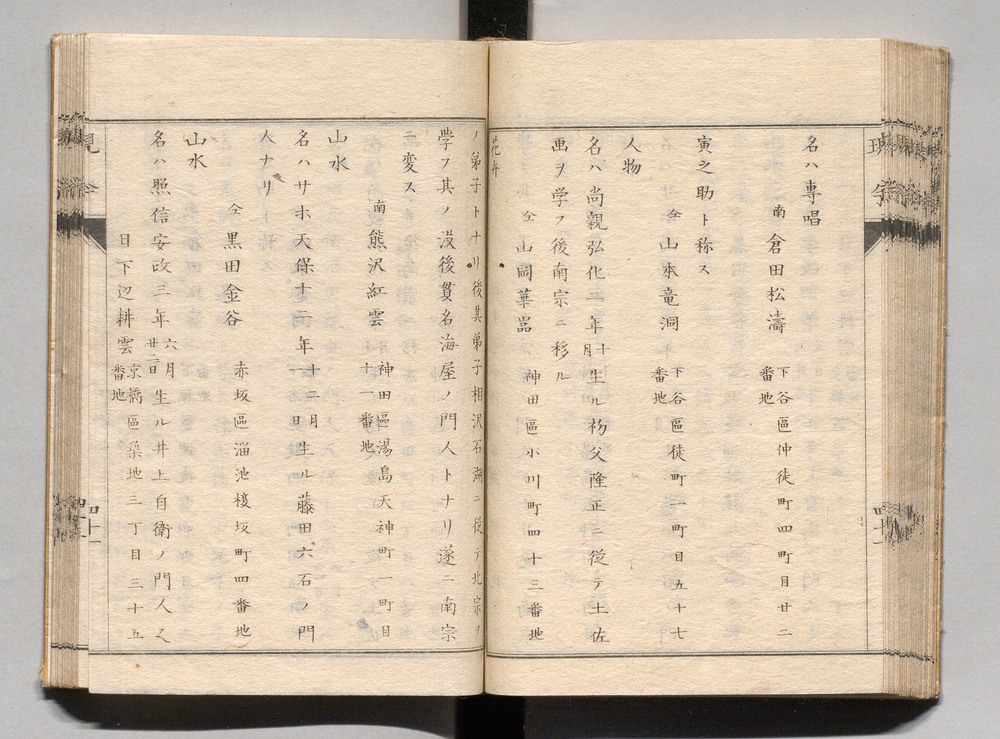 名ハ專唱
南 倉田松濤 下谷區仲徒町四町目廿二番地
寅之助ト称ス
仝 山本竜洞 下谷區徒町一町目五十七番地
人物
名ハ尚親弘化二年十月生ル初父隆正ニ從テ土佐
画ヲ学フ後南宗ニ移ル
仝 山岡華嵓 神田區小川町四十三番地
花卉
ノ弟子トナリ後其弟子相沢石湖ニ從テ北宗ヲ
学フ其ノ没後貫名海屋ノ門人トナリ遂ニ南宗
ニ変ス
南 熊沢紅雲 神田區湯島天神町一町目十一番地
山水
名ハサホ天保十二年十二月一日生ル藤田六石ノ門
人ナリ
仝 黒田金谷 赤坂區溜池榎坂町四番地
山水
名ハ照信安政三年六月廿二日生ル井上自衛ノ門人
日下辺耕雲 京橋區築地三丁目三十五番地
四十一